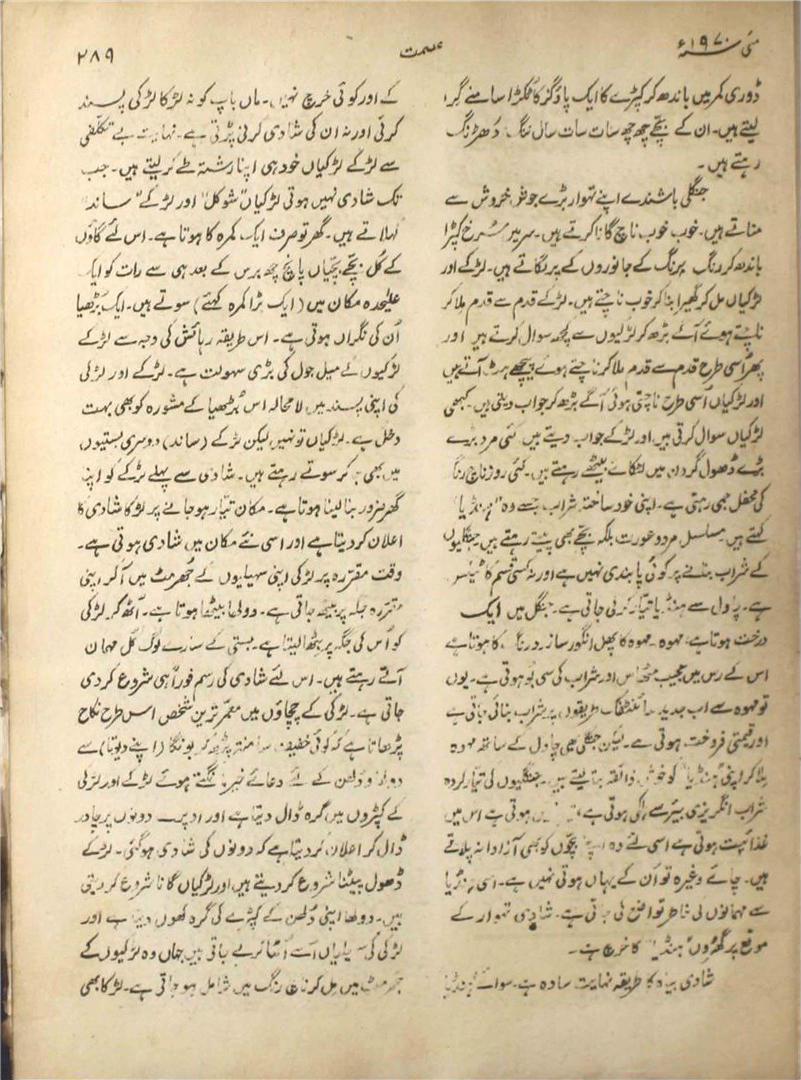 مئی ۱۹۷۰ء
عصمت
۲۸۹
ڈوری کمر میں باندھ کر کپڑے کا ایک پاؤ گز کا ٹکڑا سامنے گرا
لیتے ہیں۔ ان کے بچے چھ چھ سات سات سال ننگ دھڑنگ
رہتے ہیں۔
جنگلی باشندے اپنے تہوار بڑے جوش خروش سے
مناتے ہیں۔ خوب خوب ناچ گانا کرتے ہیں۔ سر پر سرخ کپڑا
باندھ کر رنگ برنگ کے جانوروں کے پر لگاتے ہیں۔ لڑکے اور
لڑکیاں مل کر گھیرا بنا کر خوب ناچتے ہیں۔ لڑکے قدم سے قدم ملا کر
ناچتے ہوئے آگے بڑھ کر لڑکیوں سے کچھ سوال کرتے ہیں اور
پھر اُسی طرح قدم سے قدم ملا کر ناچتے ہوے پیچھے ہٹ آتے ہیں
اور لڑکیاں اُسی طرح ناچتی ہوئی آگے بڑھ کر جواب دیتی ہیں۔ کبھی
لڑکیاں سوال کرتی ہیں اور لڑکے جواب دیتے ہیں کئی مرد بڑے
بڑے ڈھول گردن میں لٹکائے بیٹھے رہتے ہیں۔ کئی روز ناچ رنگ
کی محفل جمی رہتی ہے۔ اپنی خود ساختہ شراب جسے وہ "ہنڈیا"
کہتے ہیں مسلسل مرد و عورت بلکہ بچے بھی پیتے رہتے ہیں جنگلیوں
کے شراب بنانے پر کوئی پابندی نہیں ہے اور نہ کسی قسم کا ٹیکسر
ہے۔ چاول سے ہنڈیا تیار کرلی جاتی ہے۔ جنگل میں ایک
درخت ہوتا ہے، مہوہ۔ مہوہ کا پھل انگور سا زرد رنگ کا ہوتا ہے
اس کے رس میں عجیب مٹھاس اور شراب کی سی بو ہوتی ہے۔ یوں
تو مہوہ سے اب جدید سائنٹفک طریقوں پر شراب بنائی جاتی ہے
اور قیمتی فروخت ہوتی ہے۔ لیکن جنگلی بھی چاول کے ساتھ مہوہ
ملا کر اپنی "ہنڈیا" کو خوش ذائقہ بنا لیتے ہیں۔ جنگلیوں کی تیار کردہ
شراب انگریزی بیئر سے ہلکی ہوتی ہے، ہوتی ہے اس میں
غذائیت ہوتی ہے اسی لئے وہ اپنے بچوں کو بھی آزادانہ پلاتے
ہیں۔ چائے وغیرہ تو ان کے یہاں ہوتی نہیں ہے۔ اسی ہنڈیا
سے مہمانوں کی خاطر تواضع کی جاتی ہے۔ شادی تہوار کے
موقع پر گھڑوں "ہنڈیا" کا خرچ ہے۔
شادی بیاہ کا طریقہ نہایت سادہ ہے۔ سوائے "ہنڈیا"
کے اور کوئی خرچ نہیں۔ ماں باپ کو نہ لڑکا لڑکی پسند
کرنی اور نہ ان کی شادی کرنی پڑتی ہے۔ نہایت بے تکلفی
سے لڑکے لڑکیاں خود ہی اپنا رشتہ طے کر لیتے ہیں۔ جب
تک شادی نہیں ہوتی لڑکیاں "شوکل" اور لڑکے "ساند"
کہلاتے ہیں۔ گھر تو صرف ایک کمرہ کا ہوتا ہے۔ اس لئے گاؤں
کے کل بچے بچیاں پانچ چھ برس کے بعد ہی سے رات کو ایک
علیحدہ مکان میں (ایک بڑا کمرہ کہئے) سوتے ہیں۔ ایک بُڑھیا
اُن کی نگراں ہوتی ہے۔ اس طریقہ رہائش کی وجہ سے لڑکے
لڑکیوں کے میل جول کی بڑی سہولت ہے۔ لڑکے اور لڑکی
کی اپنی پسند میں لا محالہ اس بُڑھیا کے مشورہ کو بھی بہت
دخل ہے۔ لڑکیاں تو نہیں لیکن لڑکے (ساند) دوسری بستیوں
میں بھی جا کر سوتے رہتے ہیں۔ شادی سے پہلے لڑکے کو اپنا
گھر ضرور بنا لینا ہوتا ہے۔ مکان تیار ہو جانے پر لڑکا شادی کا
اعلان کر دیتا ہے اور اسی نئے مکان میں شادی ہوتی ہے۔
وقت مقررہ پر لڑکی اپنی سہیلیوں کے جھرمٹ میں آ کر اپنی
مقررہ جگہ پر بیٹھ جاتی ہے۔ دولھا بیٹھا ہوتا ہے۔ اُٹھ کر لڑکی
کو اُس کی جگہ پر بٹھا لیتا ہے۔ بستی کے سارے لوگ کل مہمان
آتے رہتے ہیں۔ اس لئے شادی کی رسم فوراً ہی شروع کر دی
جاتی ہے۔ لڑکی کے چچاؤں میں معمر ترین شخص اس طرح نکاح
پڑھاتا ہے کہ کوئی خفیف سا منتر پڑھ کر بونگا (اپنے دیوتا) سے
دولھا دلھن کے لئے دعائے خیر مانگتے ہوئے لڑکے اور لڑکی
کے کپڑوں میں گرہ ڈال دیتا ہے اور اوپر سے دونوں پر چادر
ڈال کر اعلان کر دیتا ہے کہ دونوں کی شادی ہو گئی۔ لڑکے
ڈھول پیٹنا شروع کر دیتے ہیں اور لڑکیاں گانا شروع کر دیتی
ہیں۔ دولھا اپنی دُلھن کے کپڑے کی گرہ کھول دیتا ہے اور
لڑکی کی سہیلیاں اُسے اُٹھا کر لے جاتی ہیں جہاں وہ لڑکیوں کے
جھرمٹ میں مل کر ناچ رنگ میں شامل ہو جاتی ہے۔ لڑکا بھی